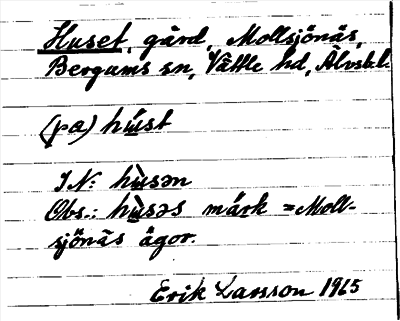 Huset, gård, Mollsjönäs,
Bergums sn, Vättle hd, Älvsbl.
(pa) hùst
IN: hùsən
Obs.: hùsəs märk = Moll-
sjönäs ägor.
Erik Larsson 1965